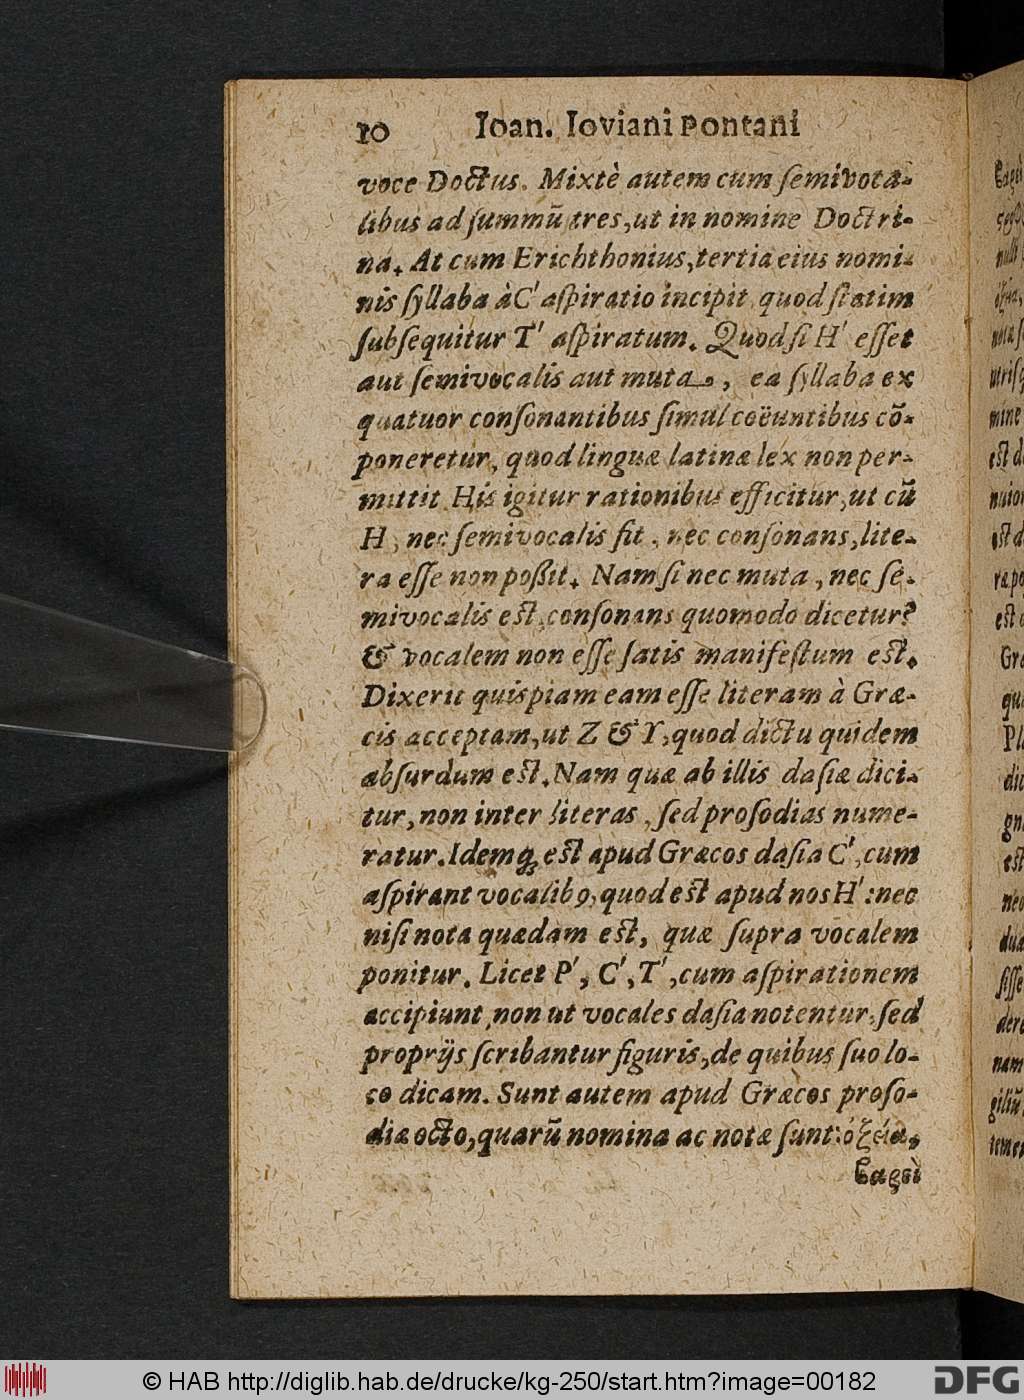 10 Ioan. Ioviani Pontani
voce Doctus. Mixtè autem cum ſemivoca-
libus ad ſummũ tres, ut in nomine Doctri-
na. At cum Erichthonius, tertia eius nomi-
nis ſyllaba à C' aſpiratio incipit, quod ſtatim
ſubſequitur T' aſpiratum. Quod ſi H' eſſet
aut ſemivocalis aut muta, ea ſyllaba ex
quatuor conſonantibus ſimul coëuntibus cõ-
poneretur, quod linguæ latinæ lex non per-
mittit. His igitur rationibus efficitur, ut cũ
H, nec ſemivocalis ſit, nec conſonans, lite-
ra eſſe non poßit. Nam ſi nec muta, nec ſe-
mivocalis eſt, conſonans quomodo dicetur?
& vocalem non eſſe ſatis manifeſtum eſt.
Dixerit quispiam eam eſſe literam à Græ-
cis acceptam, ut Z & Y, quod dictu quidem
abſurdum eſt. Nam quæ ab illis daſiæ dici-
tur, non inter literas, ſed proſodias nume-
ratur. Idemq́; eſt apud Græcos daſia C', cum
aſpirant vocalibꝰ, quod eſt apud nos H': nec
niſi nota quædam eſt, quæ ſupra vocalem
ponitur. Licet P', C', T', cum aſpirationem
accipiunt, non ut vocales daſia notentur, ſed
proprijs ſcribantur figuris, de quibus ſuo lo-
co dicam. Sunt autem apud Græcos proſo-
diæ octo, quarũ nomina ac notæ ſunt: ὀξεία,
ϐαρεὶ
© HAB http://diglib.hab.de/drucke/kg-250/start.htm?image=00182
DFG